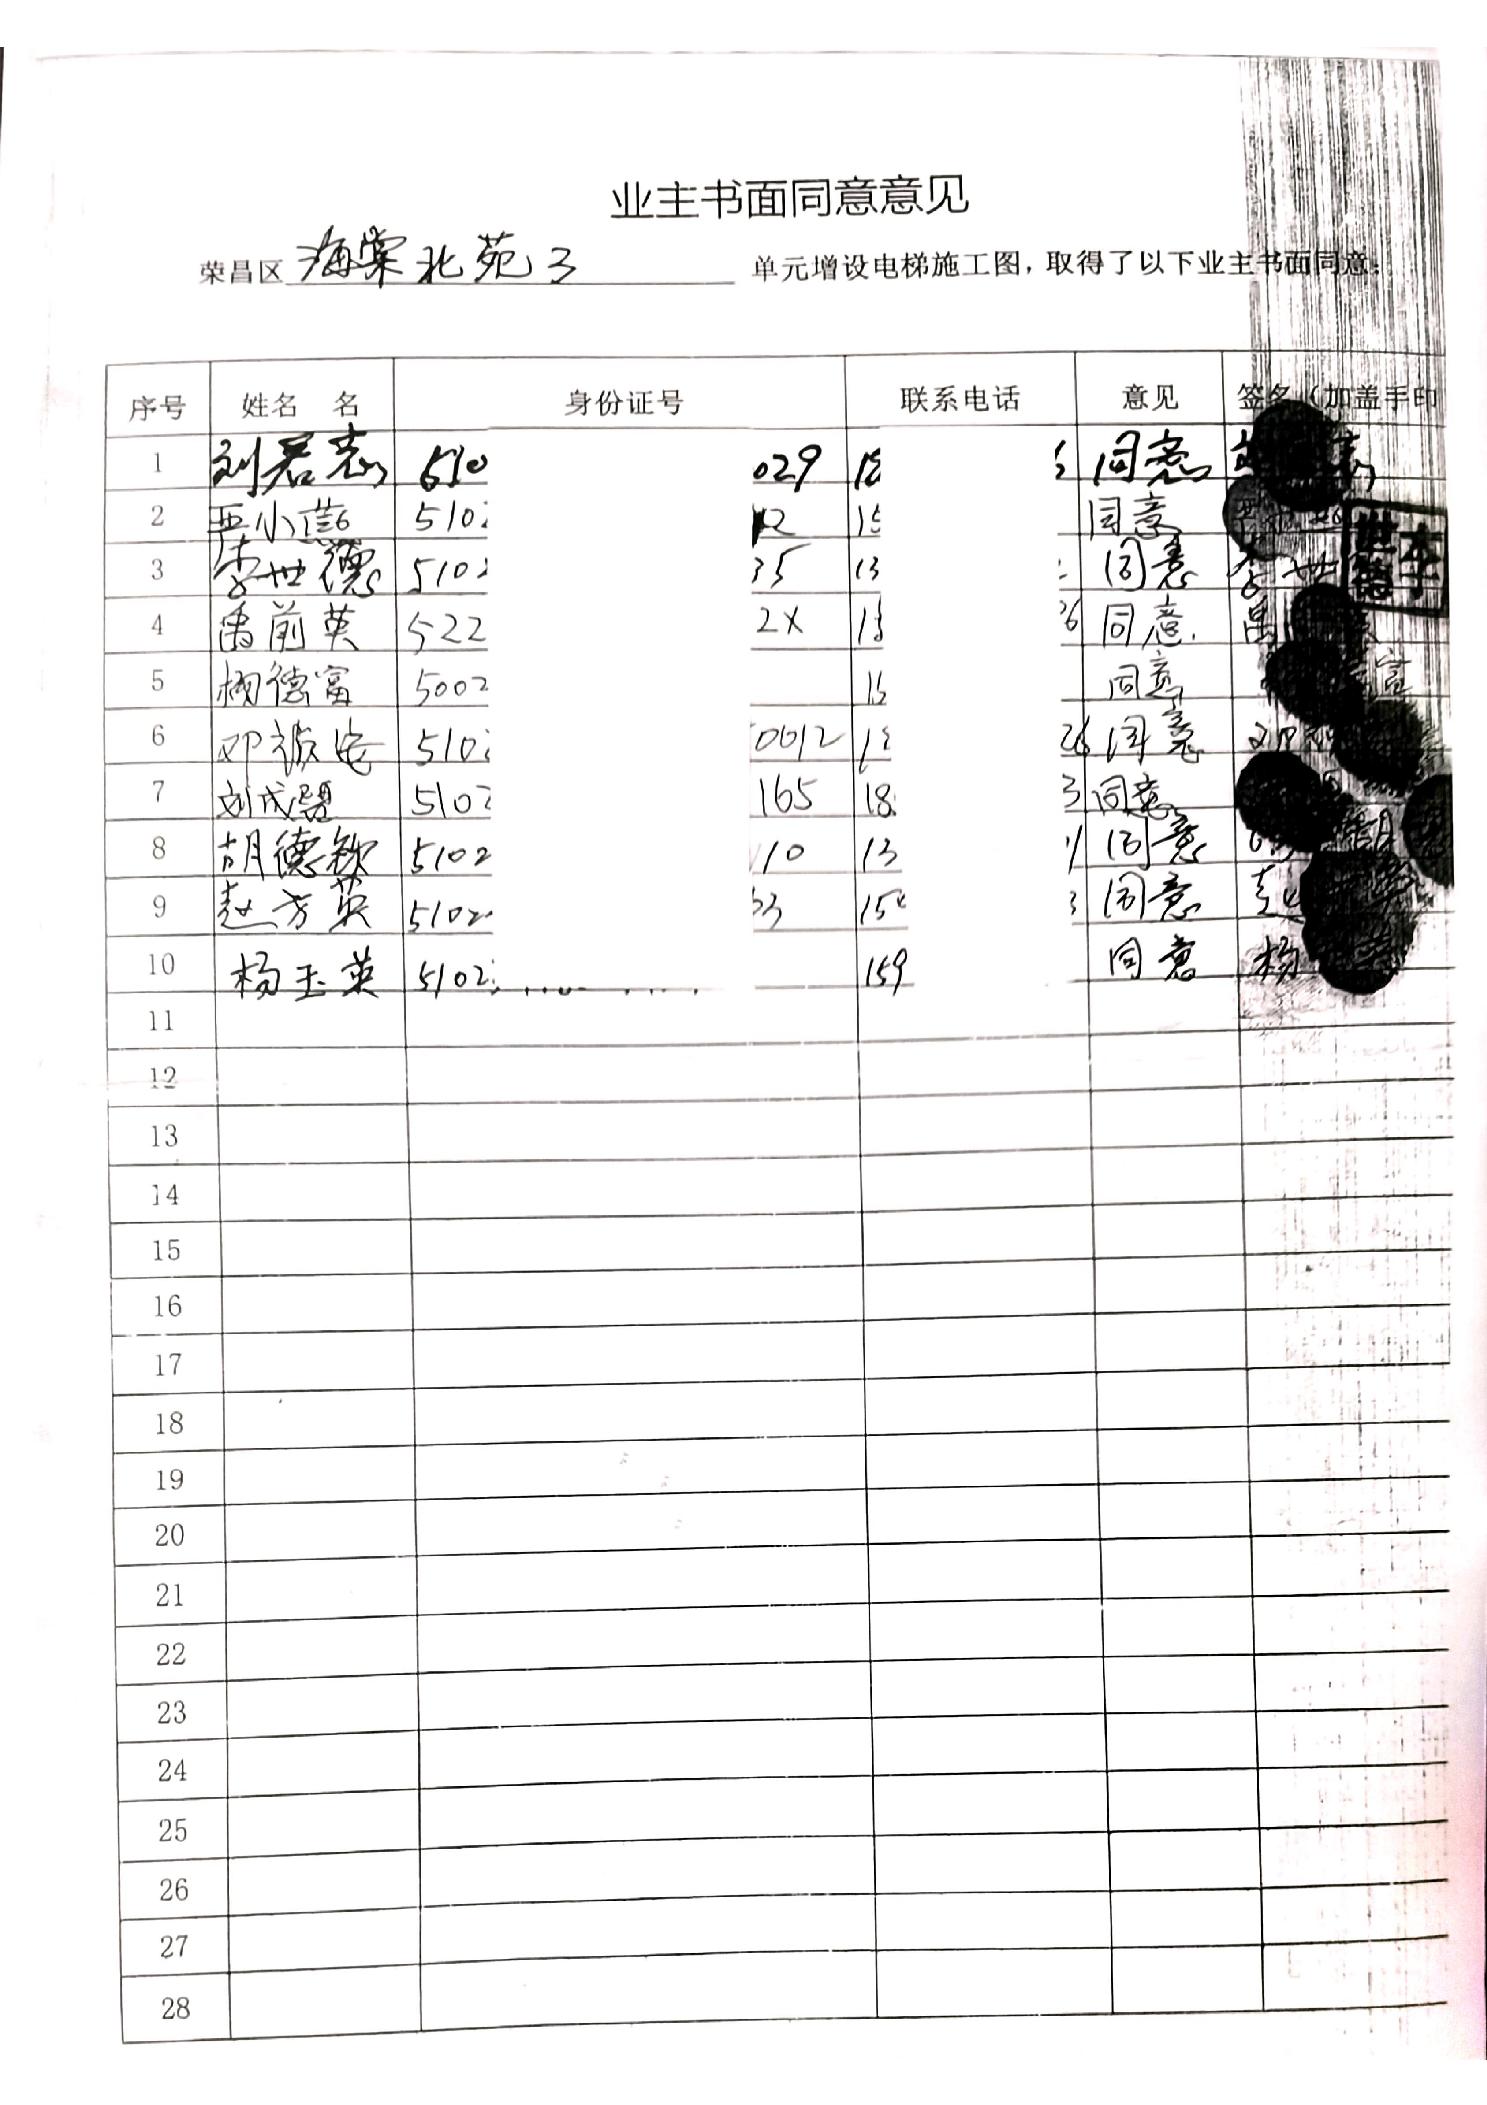 业主书面同意意见
荣昌区 海棠北苑3 单元增设电梯施工图，取得了以下业主书面同意：
序号 姓名 名 身份证号 联系电话 意见 签名（加盖手印
1 刘君志 510 029 18 同意
2 小 5102 12 15 同意
3 李世德 5102 35 13 同意 李世 李世德
4 禹前英 522 2X 13 26 同意 禹
5 杨德富 5002 15 同意 富
6 邓 5102 0012 26 同意 邓
7 刘成 5102 165 18 3 同意
8 胡德钦 5102 10 13 同意 胡
9 赵方英 5102 33 15 3 同意 赵
10 杨玉英 5102 159 同意 杨
11
12
13
14
15
16
17
18
19
20
21
22
23
24
25
26
27
28